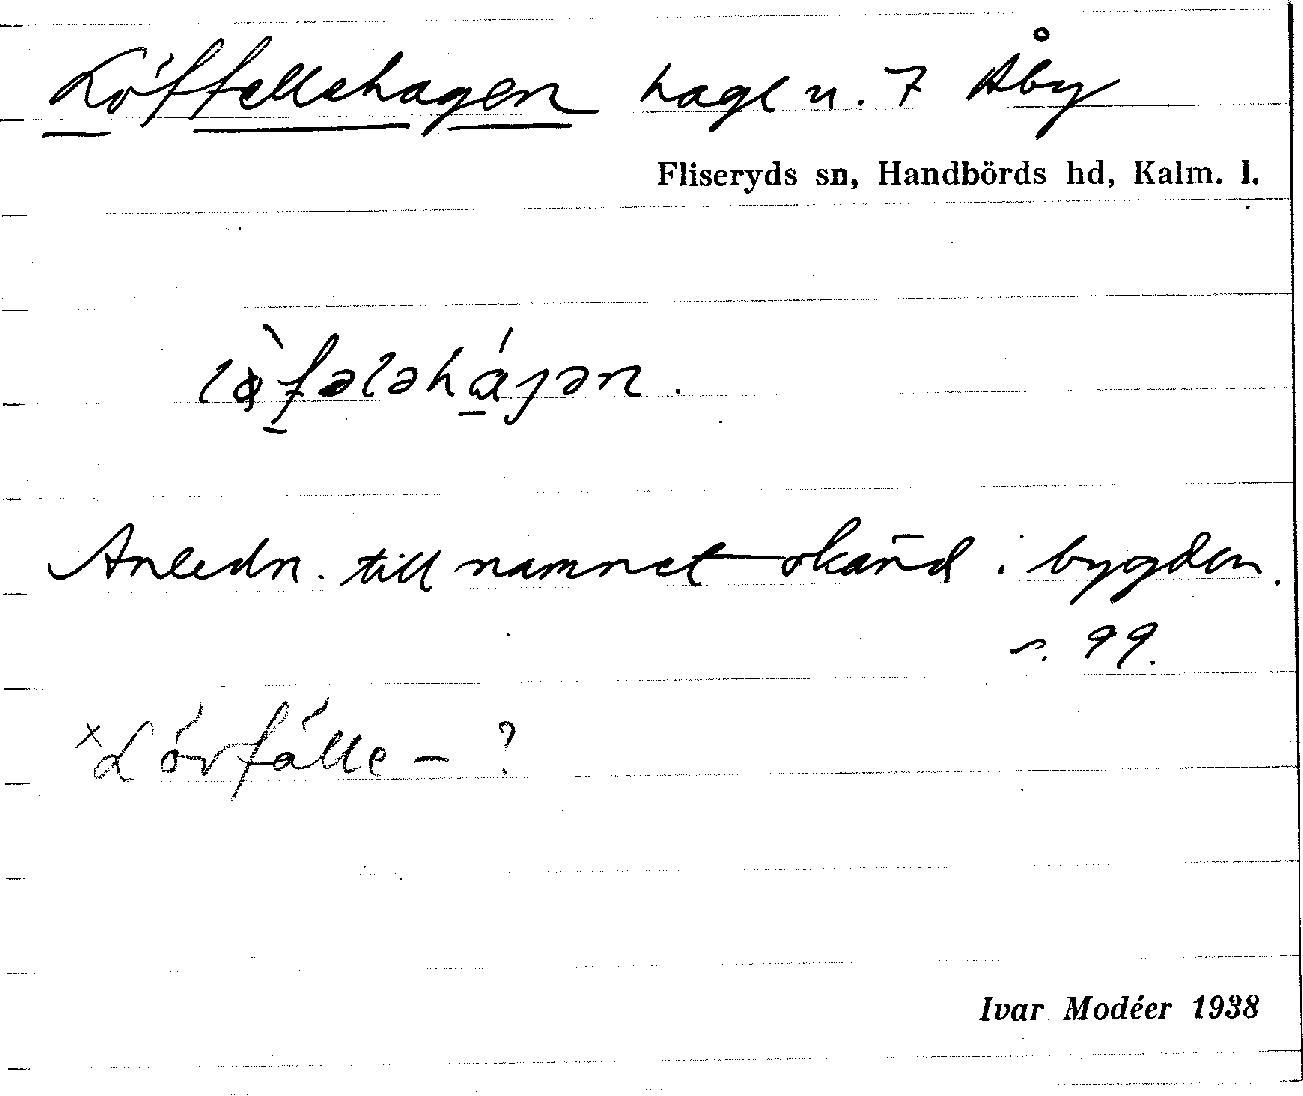 Löffellehagen hage u. 7 Åby
Fliseryds sn, Handbörds hd, Kalm. l.
Anledn. till namnet okänd i bygden.
s. 99.
×Lövfälle – ?
Ivar Modéer 1938